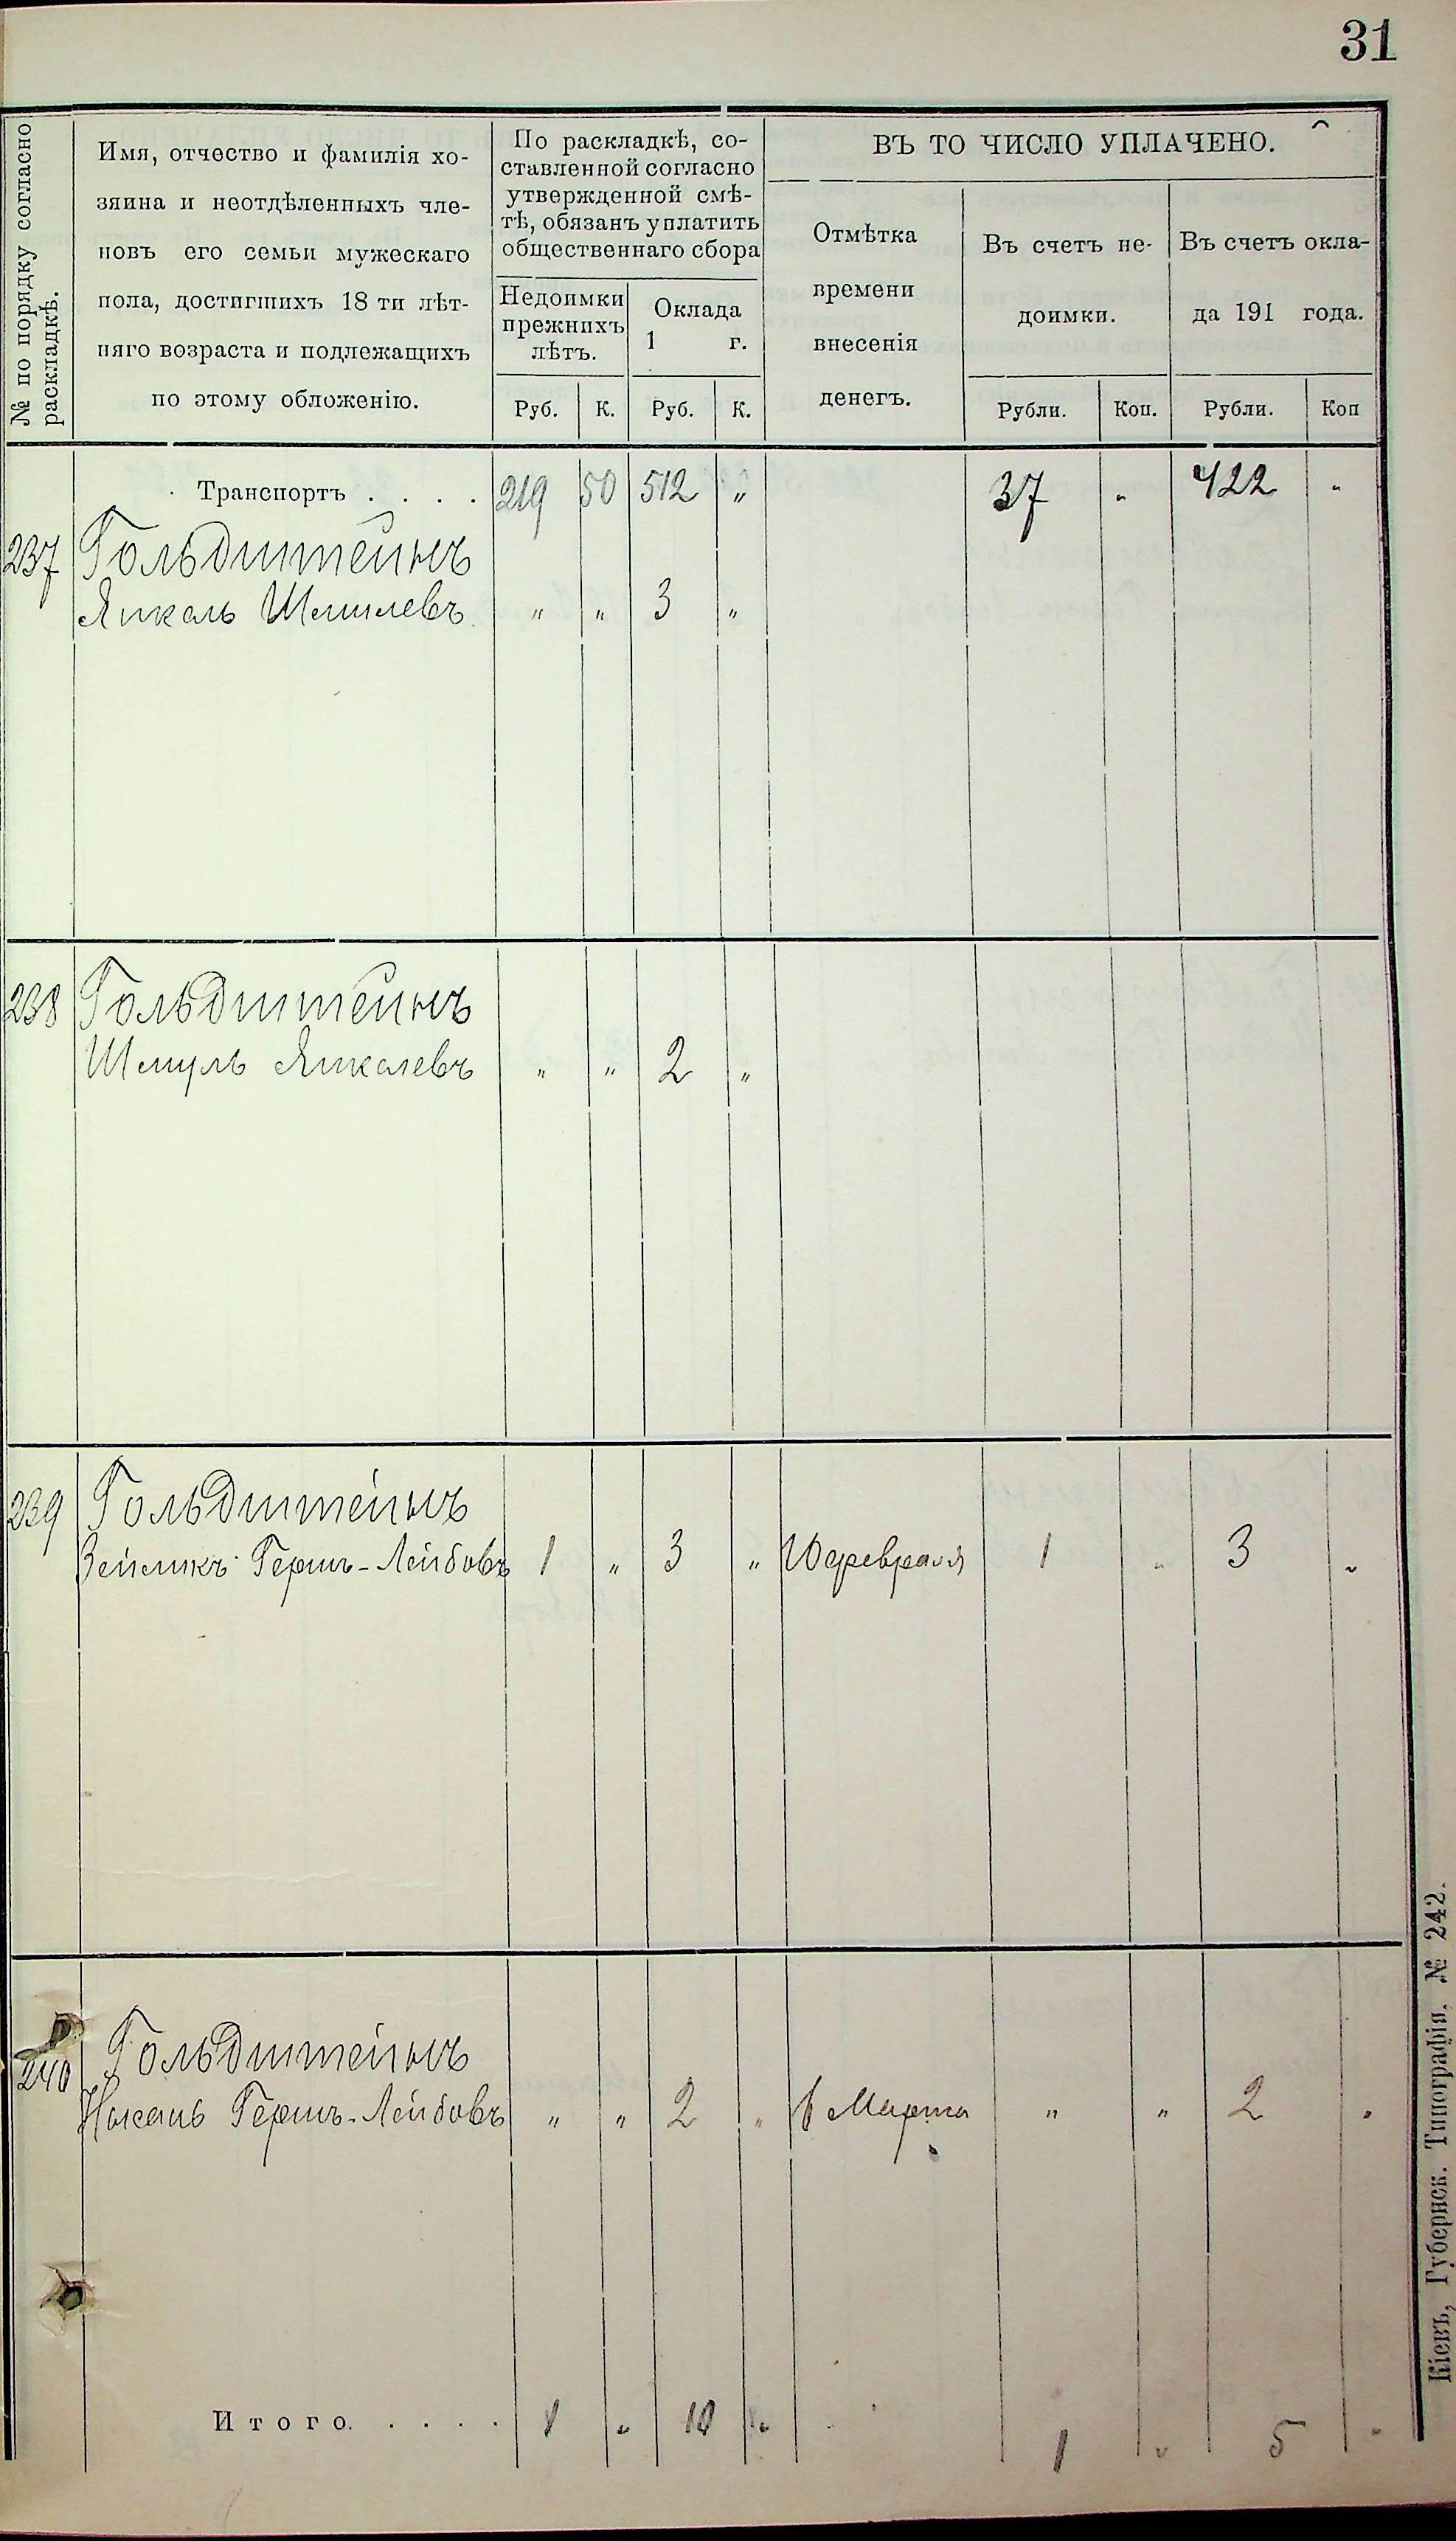 31
№ по порядку согласно
раскладкѣ.
Имя, отчество и фамилія хо-
зяина и неотдѣленныхъ чле-
новъ его семьи мужескаго
пола, достигшихъ 18 ти лѣт-
няго возраста и подлежащихъ
по этому обложенію.
По раскладкѣ, со-
ставленной согласно
утвержденной смѣ-
тѣ, обязанъ уплатить
общественнаго сбора
Недоимки
прежнихъ
лѣтъ.
Оклада
1 г.
Руб. К. Руб. К.
ВЪ ТО ЧИСЛО УПЛАЧЕНО.
Отмѣтка
времени
внесенія
денегъ.
Въ счетъ не-
доимки.
Рубли. Коп.
Въ счетъ окла-
да 191 года.
Рубли. Коп
Транспортъ . . . . 219 50 512 „ 37 „ 422 „
237 Гольдштейнъ
Янкель Шмилевъ „ „ 3 „
238 Гольдштейнъ
Шмуль Янкелевъ „ „ 2 „
239 Гольдштейнъ
Зейликъ Гершъ-Лейбовъ 1 „ 3 „ февраля 1 „ 3 „
240 Гольдштейнъ
Гершъ-Лейбовъ „ „ 2 „ Марта „ „ 2 „
Итого. . . . . 1 „ 10 „ 1 „ 5 „
Кіевъ, Губернск. Типографія. № 242.